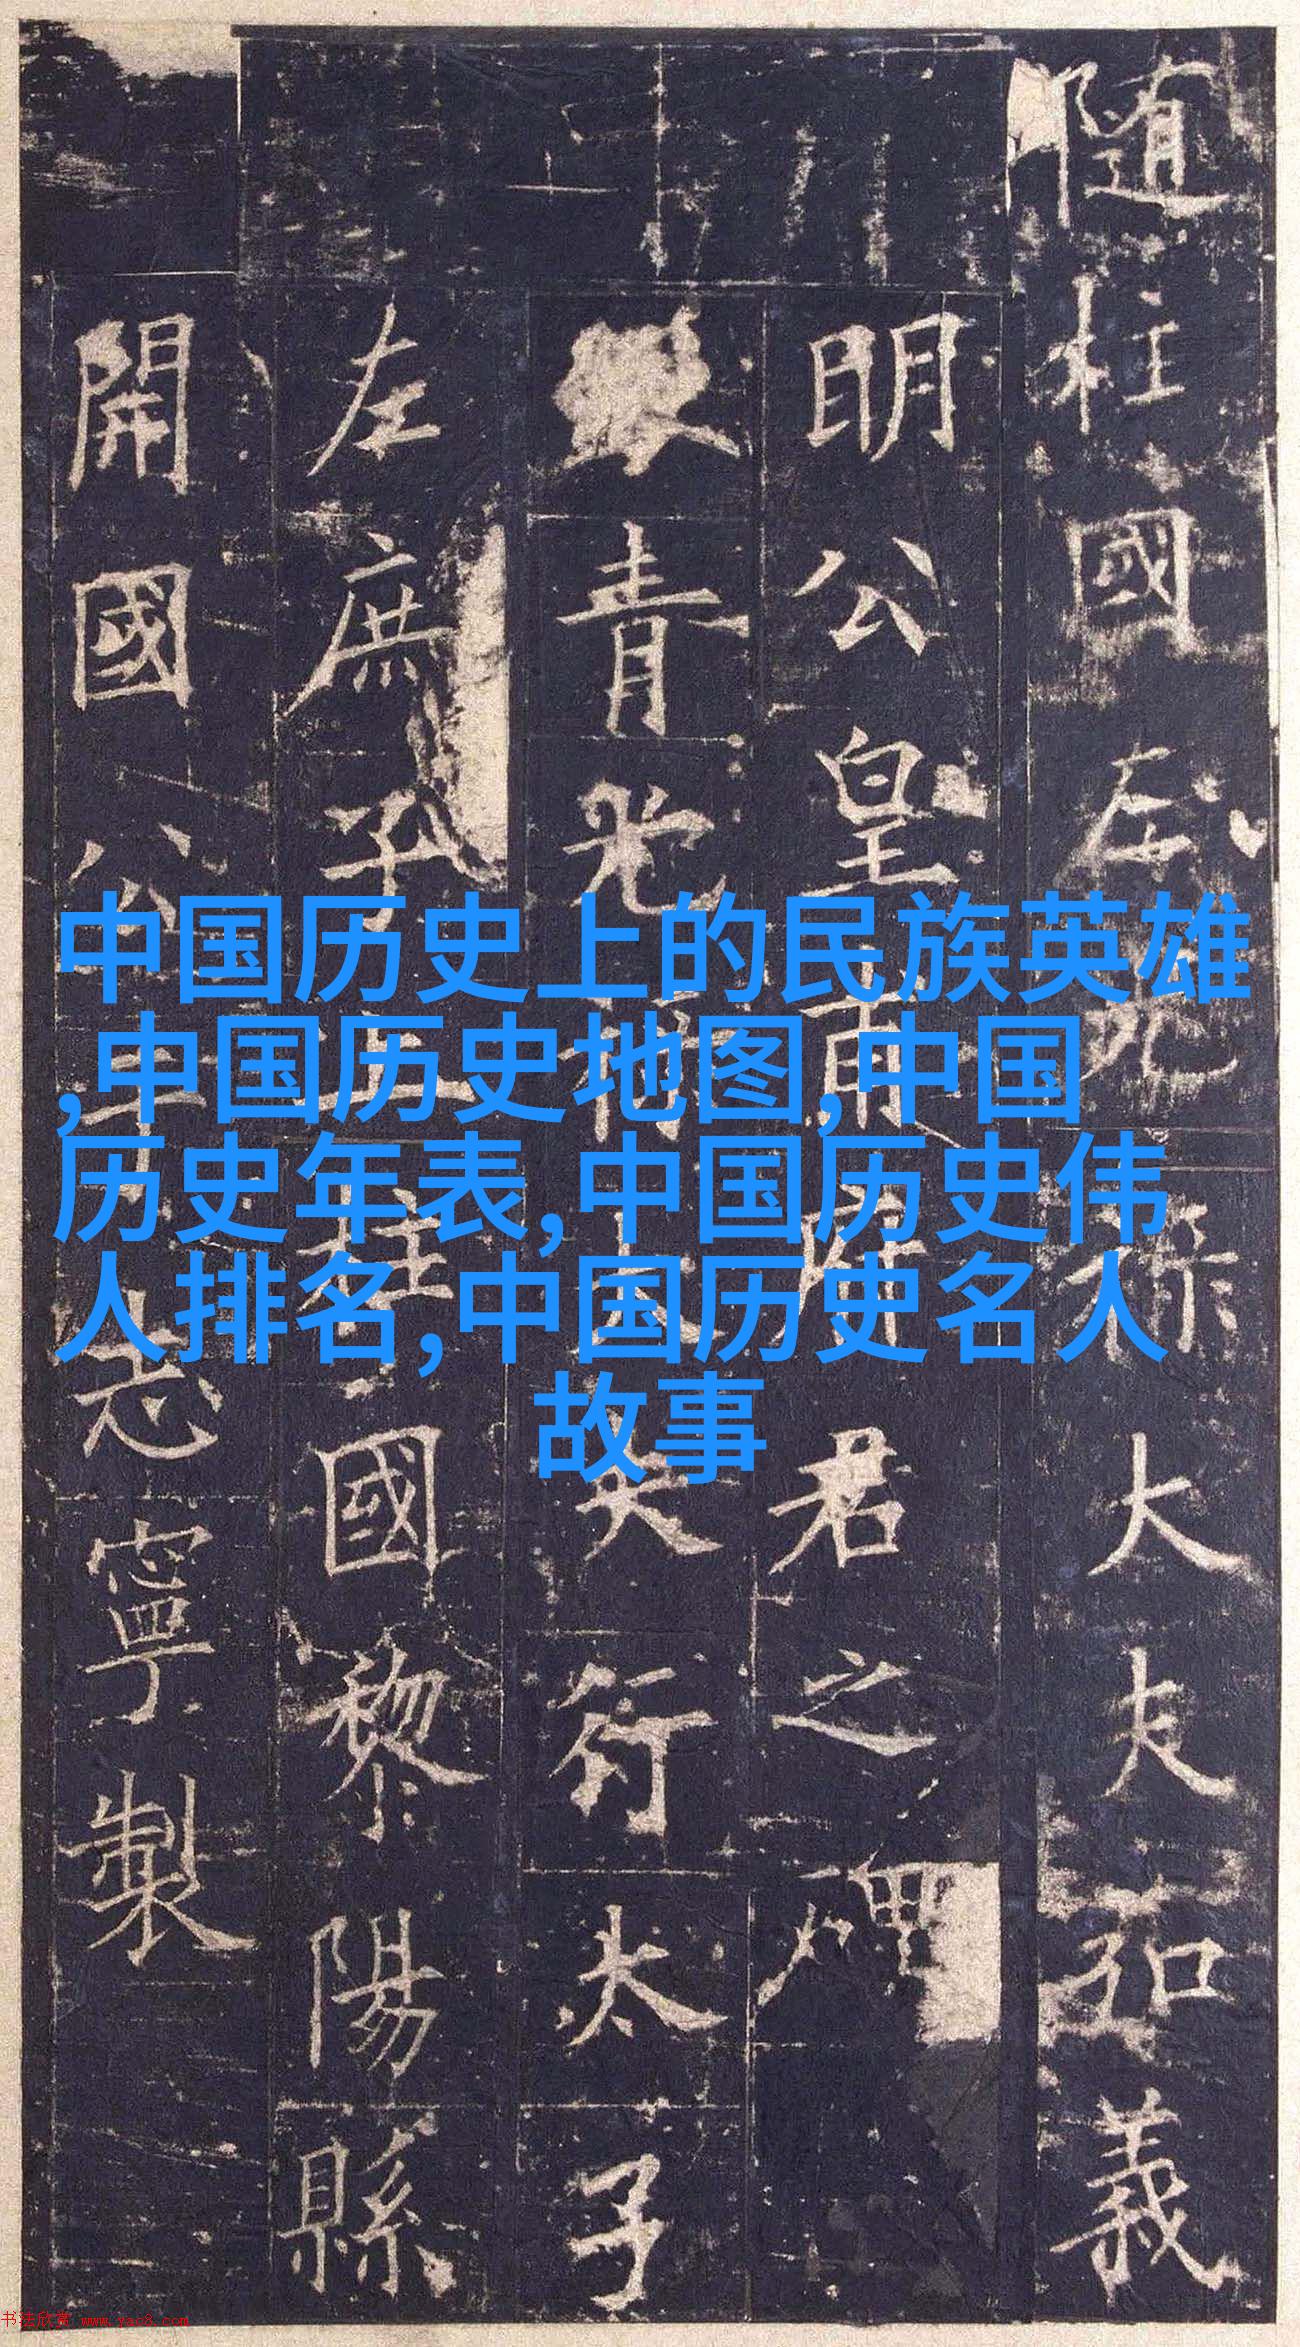 隨柱國左光祿大夫弘義
明公皇甫府君之碑
青光祿大夫行太子
左庶子上柱國黎陽縣
開國公于志寧製
中国历史上的民族英雄
,中国历史地图,中国
历史年表,中国历史伟
人排名,中国历史名人
故事
书法欣赏 www.yac8.com